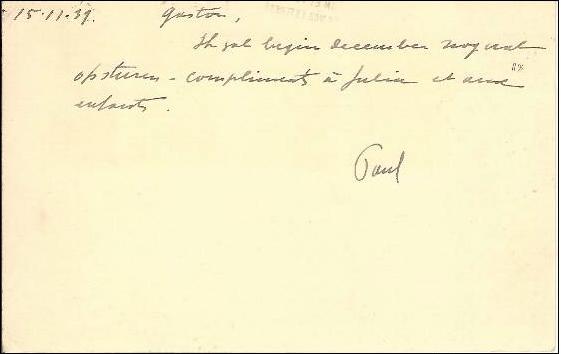 15.11.39. Gaston,
Ik zal begin december nog wat
opsturen - compliments à Julia et aux
enfants.
Paul